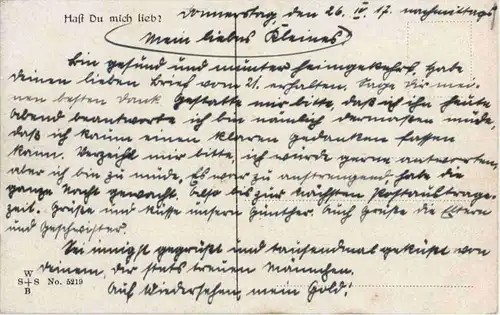 Hast Du mich lieb?
Donnerstag, den 26. IV. 17. nachmittags
Mein liebes Kleines!
Bin gesund und munter heimgekehrt. Habe
deinen lieben Brief vom 21. erhalten. Sage dir mei-
nen besten Dank. Gestatte mir bitte, daß ich ihn heute
Abend beantworte ich bin nämlich dermaßen müde,
daß ich kaum einen klaren Gedanken fassen
kann. Verzeiht mir bitte, ich würde gerne antworten,
aber ich bin zu müde. Es war zu anstrengend, habe die
ganze Nacht gewacht. Also bis zur nächsten Postaustrage-
zeit. Grüße und küsse unsern Günther. Auch Grüße die Eltern
und Geschwister.
Sei innigst gegrüßt und tausendmal geküßt von
deinem, dir stets treuen Männchen.
Auf Wiedersehen, mein Gold!
W
S+S
B
No. 5219